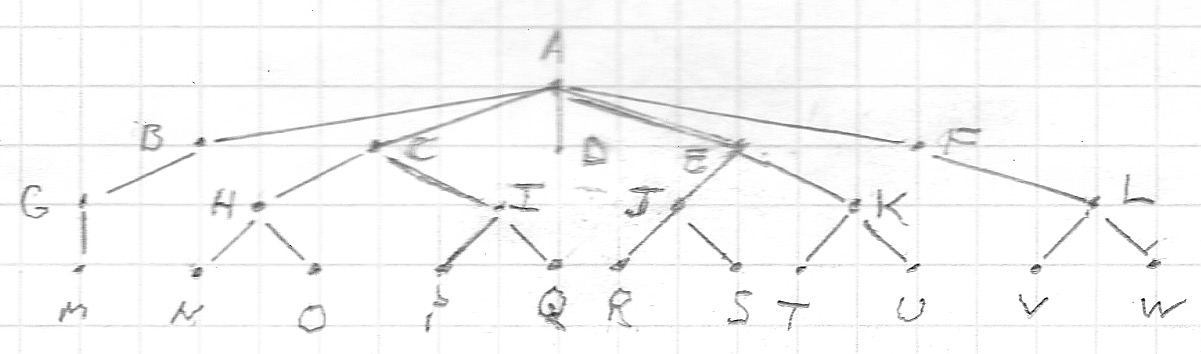 A
B C D E F
G H I J K L
M N O P Q R S T U V W